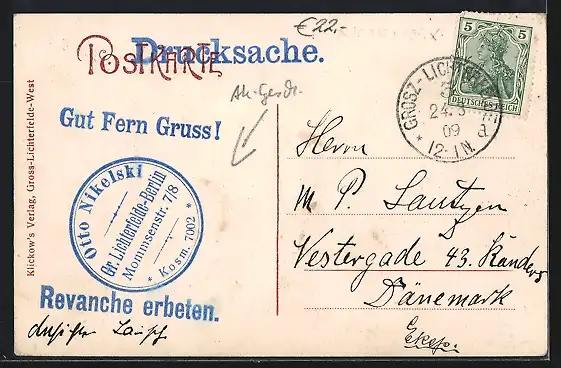 €22.-
Drucksache.
POSTKARTE
5 5
DEUTSCHES REICH
GROSZ-LICHTERFELDE
24.
09
* 12-1N.
Gut Fern Gruss!
Otto Nikelski
Gr. Lichterfelde-Berlin
Mommsenstr. 7/8
* Kosm. 7002 *
Revanche erbeten.
Klickow's Verlag, Gross-Lichterfelde-West
Herrn
P. Lautzen
Vestergade 43. Randers
Dänemark